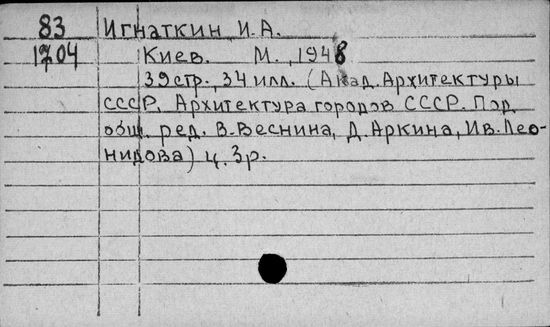 83 Игнаткин И.А.
1704 Киев. М., 1948
39 стр., 34 илл. (Акад. Архитектуры
СССР, Архитектура городов СССР. Под
общ. ред. В. Веснина, Д. Аркина, Ив. Лео-
нидова) ц. 3 р.